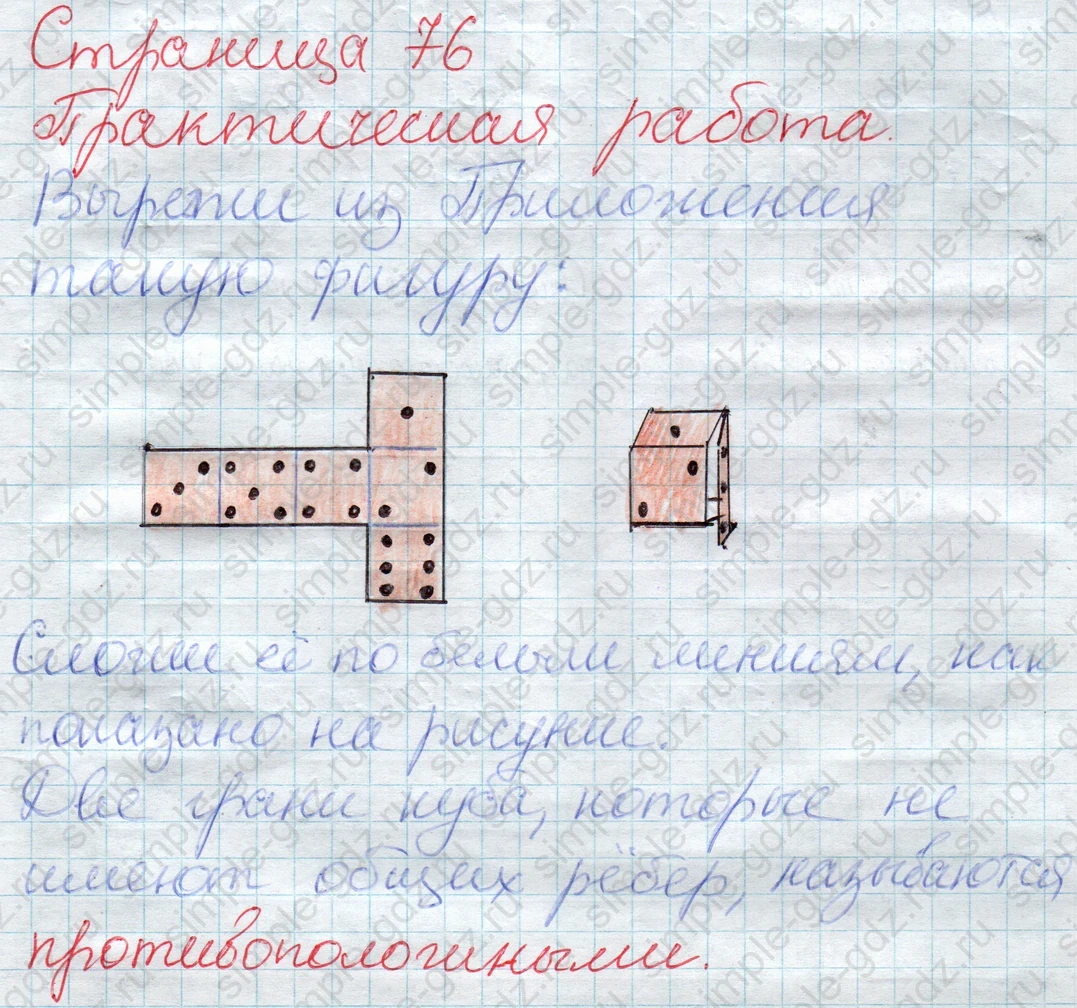 Страница 76
Практическая работа.
Вырежи из Приложения
такую фигуру:
Сложи её по белым линиям, как
показано на рисунке.
Две грани куба, которые не
имеют общих рёбер, называются
противоположными.
simple-gdz.ru